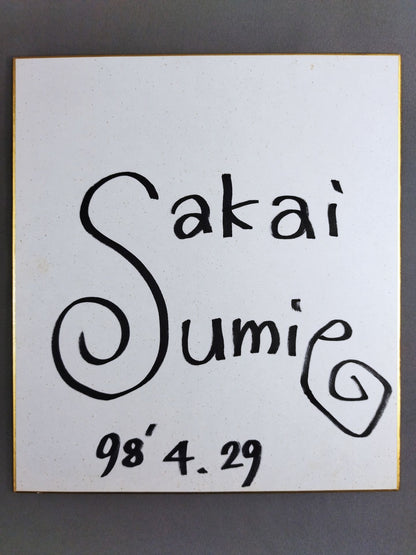 Sakai
Sumie
98' 4.29